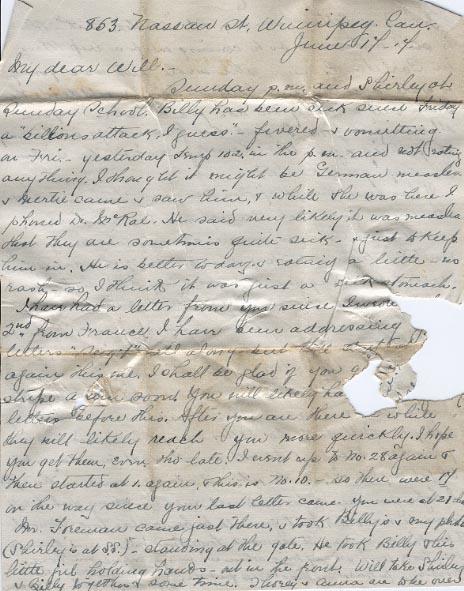 853 Nassau St, Winnipeg, Can.
June 17-17
My dear Will.-
Sunday p.m. and Shirley at
Sunday School. Billy has been sick since Friday
a "billious attack, I guess" - fevered & vomiting
on Fri. - yesterday temp 102. in the p.m. and not eating
anything. I thought it might be German measles
& Gertie came & saw him, & while she was here I
phoned Dr. McRae. He said very likely it was measles
that they are sometimes quite sick - & just to keep
him in. He is better today & eating a little - no
rash, so, I think it was just a sick stomach.
I have had a letter from you since I wrote
2nd from France. I have been addressing
letters all along but
again this one. I shall be glad if you
stripe soon. You will likely ha
letters before this. After you are there a while
they will likely reach you more quickly. I hope
you get them, even tho late. I went up to No. 28 again &
then started at 1. again, & this is No. 10. - so there were
on the way since your last letter came. You were at
Mr. Foreman came just there, & took Billy's & my photo
(Shirley is at S.S.) - standing at the gate. He took Billy & his
little girl holding hands - out in the front. Will take Shirley
& Billy together some time. & Anna are the ones